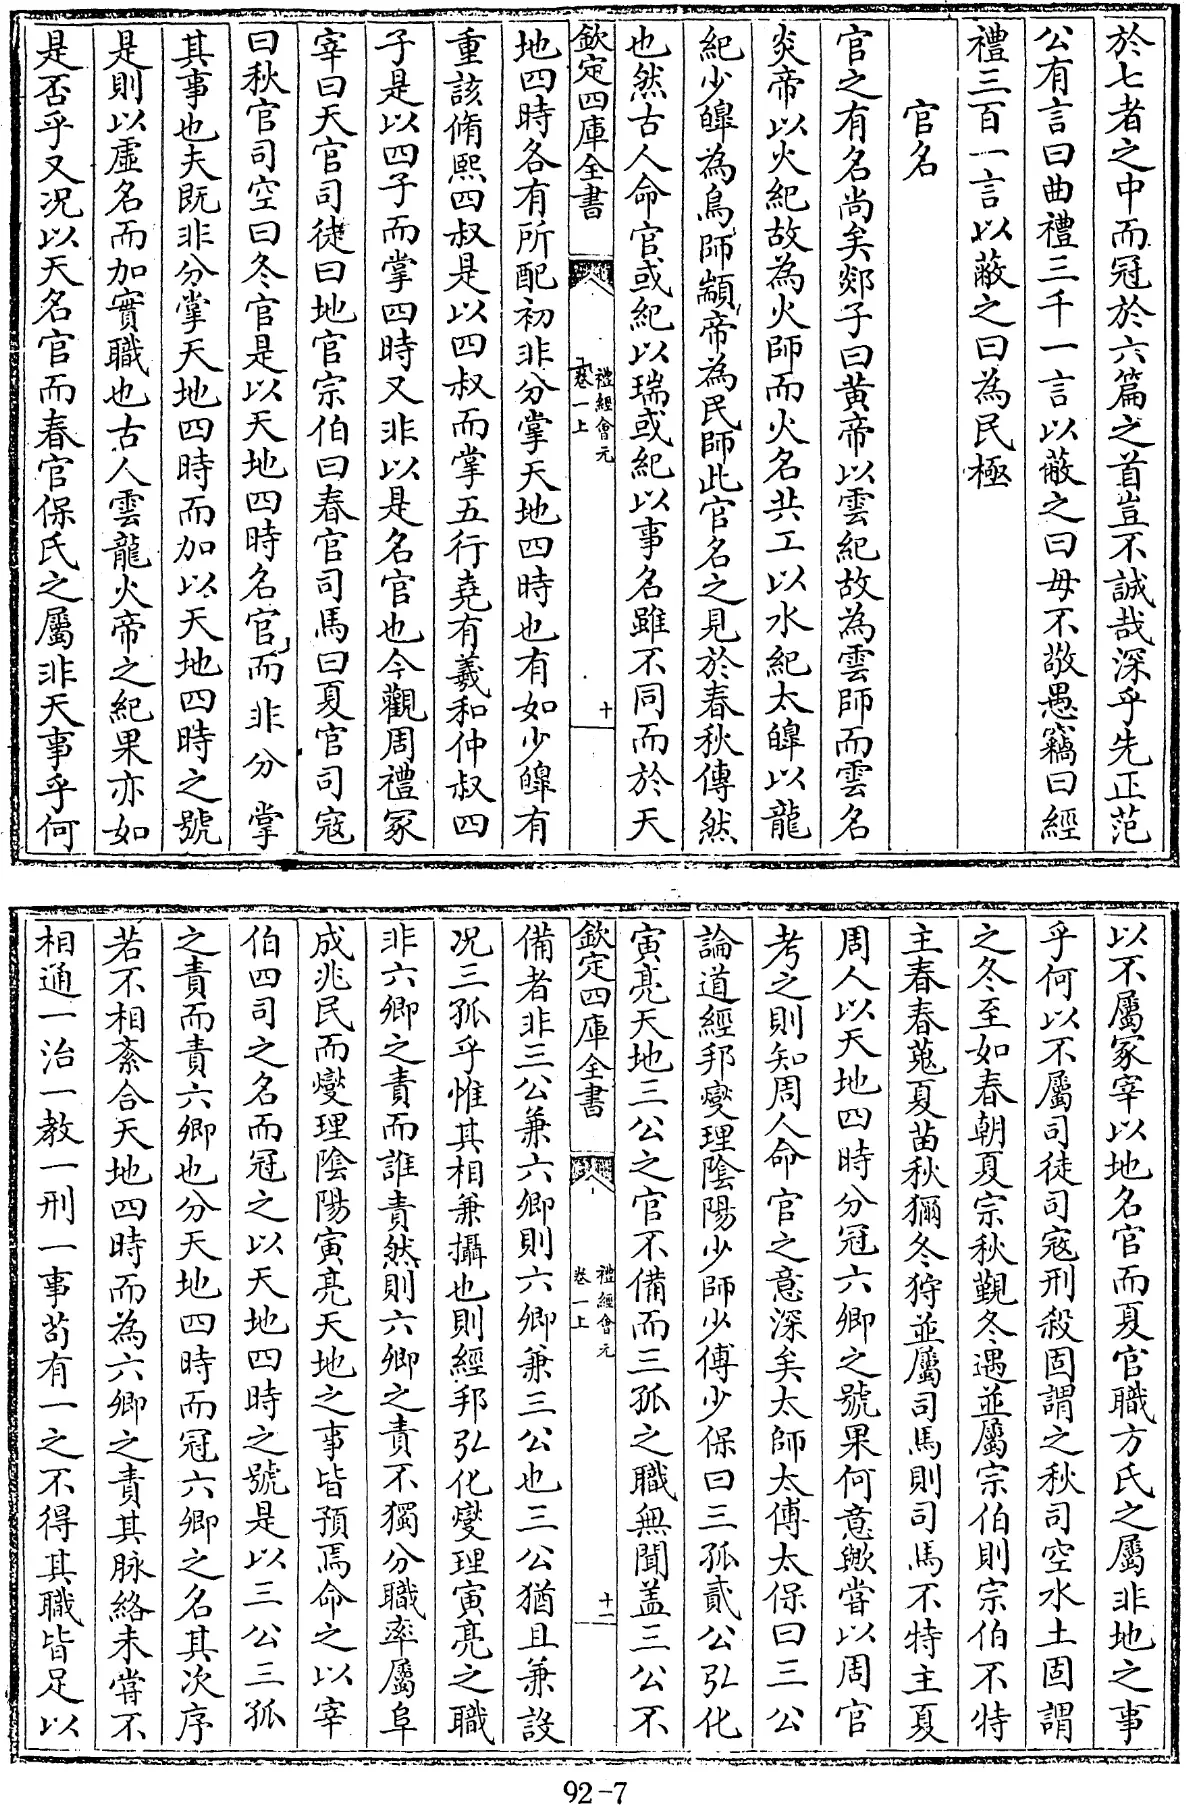 於七者之中而冠於六篇之首豈不誠哉深乎先正范
公有言曰曲禮三千一言以蔽之曰毋不敬愚竊曰經
禮三百一言以蔽之曰為民極
官名
官之有名尚矣郯子曰黄帝以雲紀故為雲師而雲名
炎帝以火紀故為火師而火名共工以水紀太皥以龍
紀少皥為鳥師顓帝為民師此官名之見於春秋傳然
也然古人命官或紀以瑞或紀以事名雖不同而於天
欽定四庫全書
禮經會元
卷一上
十
地四時各有所配初非分掌天地四時也有如少皥有
重該脩熙四叔是以四叔而掌五行堯有羲和仲叔四
子是以四子而掌四時又非以是名官也今觀周禮冢
宰曰天官司徒曰地官宗伯曰春官司馬曰夏官司寇
曰秋官司空曰冬官是以天地四時名官而非分掌
其事也夫既非分掌天地四時而加以天地四時之號
是則以虛名而加實職也古人雲龍火帝之紀果亦如
是否乎又況以天名官而春官保氏之屬非天事乎何
以不屬冢宰以地名官而夏官職方氏之屬非地之事
乎何以不屬司徒司寇刑殺固謂之秋司空水土固謂
之冬至如春朝夏宗秋覲冬遇並屬宗伯則宗伯不特
主春春蒐夏苗秋獮冬狩並屬司馬則司馬不特主夏
周人以天地四時分冠六卿之號果何意歟嘗以周官
考之則知周人命官之意深矣太師太傅太保曰三公
論道經邦燮理陰陽少師少傅少保曰三孤貳公弘化
寅亮天地三公之官不備而三孤之職無聞盖三公不
欽定四庫全書
禮經會元
卷一上
十一
備者非三公兼六卿則六卿兼三公也三公猶且兼設
况三孤乎惟其相兼攝也則經邦弘化燮理寅亮之職
非六卿之責而誰責然則六卿之責不獨分職率屬阜
成兆民而燮理陰陽寅亮天地之事皆預焉命之以宰
伯四司之名而冠之以天地四時之號是以三公三孤
之責而責六卿也分天地四時而冠六卿之名其次序
若不相紊合天地四時而為六卿之責其脉絡未嘗不
相通一治一教一刑一事苟有一之不得其職皆足以
92-7